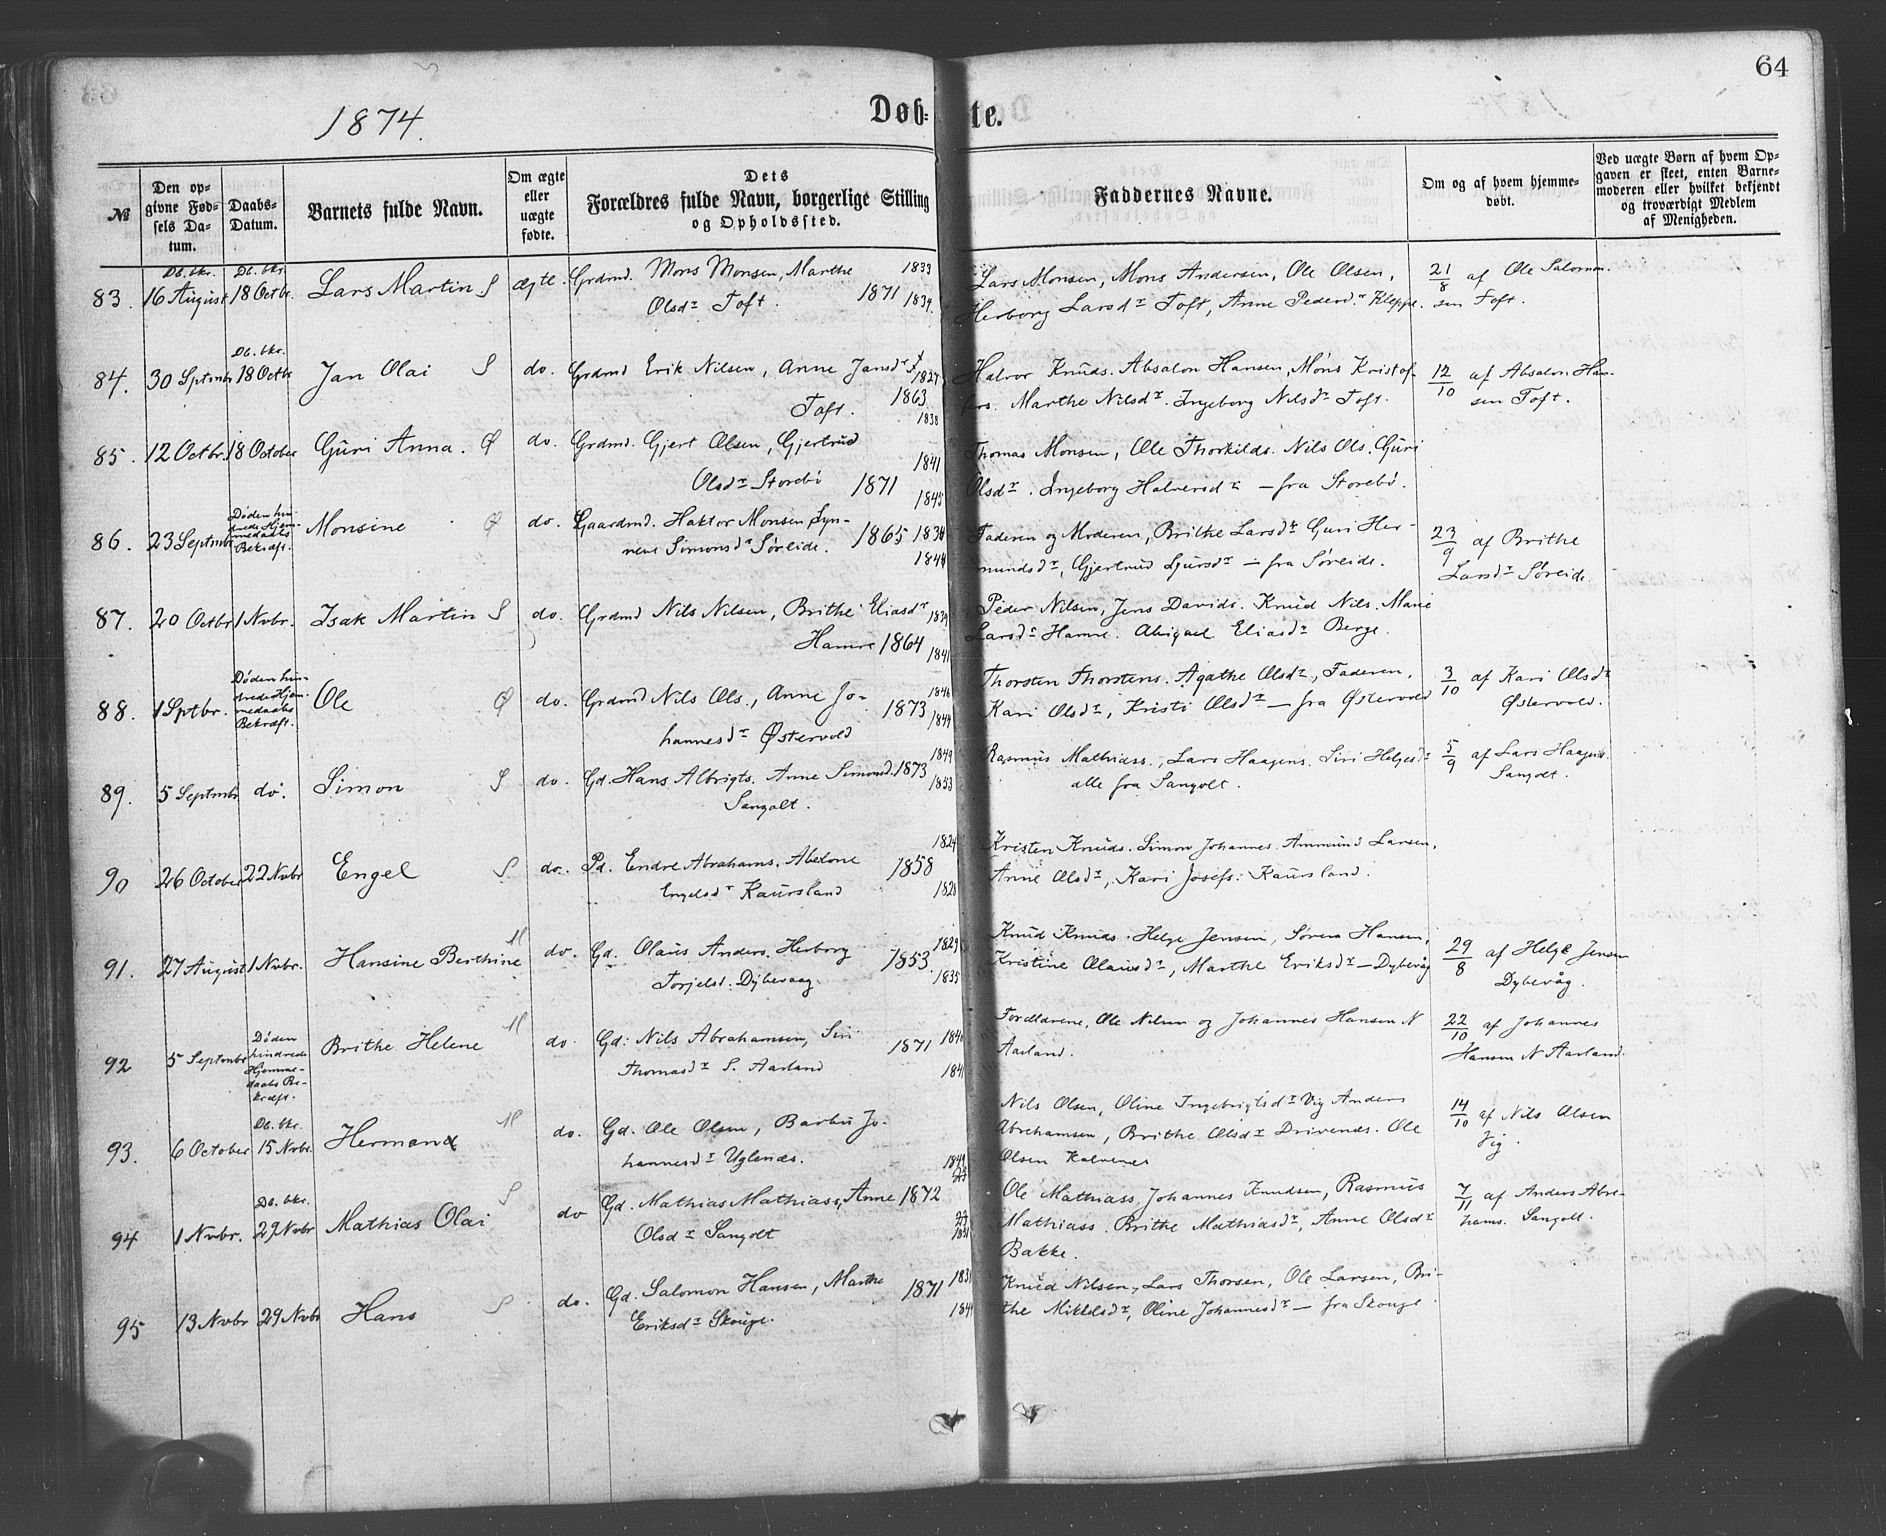 64
1874.
Døb-te.
№
Den opgivne Fødsels Datum.
Daabs-Datum.
Barnets fulde Navn.
Om ægte eller uægte fødte.
Dets Forældres fulde Navn, borgerlige Stilling og Opholdssted.
Faddernes Navne.
Om og af hvem hjemmedøbt.
Ved uægte Børn af hvem Opgaven er skeet, enten Barnemoderen eller hvilket bekjendt og troværdigt Medlem af Menigheden.
Db. bkr. Db. bkr.
83. 16 August 18 Octbr. Lars Martin S ægte. Grdmd. Mons Monsen, Marthe 1833 Lars Monsen, Mons Andersen, Ole Olsen, 21/8 af Ole Salomon-
Olsdr Toft. 1871 1834. Herborg Larsdr Toft, Anne Pedersdr Kleppe. sen Toft.
Db. bkr.
84. 30 Sptmbr 18 Octbr Jan Olai S do. Grdmd Erik Nilsen, Anne Jansdr 1827 Halvor Knuds. Absalon Hansen, Mons Kristof- 12/10 af Absalon Han-
Toft. 1863 1838 fers. Marthe Nilsdr. Ingeborg Nilsdr Toft. sen Toft.
85. 12 Octbr. 18 October Guri Anna. Ø do. Grdmd. Gjert Olsen, Gjertrud 1841 Thomas Monsen, Ole Thorkilds. Nils Ols. Guri
Olsdr Storebø 1871 1845 Olsdr. Ingeborg Halversdr – fra Storebø.
86. 23 Septmbr Døden hindrede Hjemmedaabs Bekræft. Monsine Ø do. Gaardmd. Haktor Monsen, Syn- 1865 1834 Faderen og Moderen, Brithe Larsdr Guri Her- 23/9 af Brithe
neve Simonsdr Søreide. 1844 mundsdr, Gjertrud Sjursdr – fra Søreide. Larsdr Søreide
87. 20 Octbr 1 Nvbr. Isak Martin S do. Grdmd Nils Nilsen, Brithe Eliasdr 1839 Peder Nilsen, Jens Davids. Knud Nils. Marie
Hamre 1864 1841 Larsdr Hamre. Abigael Eliasdr Berge.
88. 1 Sptbr. Døden hindrede Hjemmedaabs Bekræft. Ole Ø do. Grdmd Nils Ols., Anne Jo- 1873 1846 Thorsten Thorstens. Agathe Olsdr, Faderen, 3/10 af Kari Olsdr
hannesdr Østervold 1844 Kari Olsdr, Kristi Olsdr – fra Østervold Østervold.
89. 5 Septmbr do. Simon S do. Gd. Hans Albrigts. Anne Simond. 1873 1849 Rasmus Mathiass., Lars Haagens. Siri Helgesdr 5/9 af Lars Haagens.
Sangolt. 1853 alle fra Sangolt. Sangolt.
90 26 October 22 Nvbr Engel S do. Pd. Endre Abrahams. Abelone 1858 1824 Kristen Knuds. Simon Johannes. Ammund Larsen,
Engelsdr Kaursland 1828 Anne Olsdr, Kari Josefs: Kaursland.
91. 27 August 1 Nvbr. Hansine Berthine M do. Gd. Olaus Anders. Herborg 1853. 1829 Knud Knuds. Helge Jensen, Søren Hansen, 29/8 af Helge Jensen
Torjelsd. Dybevaag. 1835 Kristine Olausdr, Marthe Eriksdr – Dybevåg Dybevåg.
92 5 Septmbr Døden hindrede Hjemmedaabs Bekræft. Brithe Helene M do Gd: Nils Abrahamsen, Siri 1871 1840 Forældrene, Ole Nilsen og Johannes Hansen N 22/10 af Johannes
Thomasdr S. Aarland 1841 Aarland. Hansen N Aarland.
Db. bkr.
93. 6 October 15 Nvbr. Hermand M do. Gd. Ole Olsen, Barbu Jo- Nils Olsen, Oline Ingebrigtsdr Vig Anders 14/10 af Nils Olsen
hannesdr Uglenæs. 1849 Abrahamsen, Brithe Olsdr Drivenes. Ole Vig.
Olsen Kalvenes
Db. bkr.
94 1 Nvbr. 29 Nvbr Mathias Olai S do Gd. Mathias Mathiass, Anne 1872 Ole Mathiass. Johannes Knudsen, Rasmus 7/11 af Anders Abra-
Olsdr Sangolt Mathiass. Brithe Mathiasdr, Anne Olsdr hams. Sangolt.
Bakke.
95 13 Nvbr 29 Nvbr Hans S do. Gd. Salomon Hansen, Marthe 1871 Knud Nilsen, Lars Thorsen, Ole Larsen, Bri-
Eriksdr Skouge. the Mikkelsdr, Oline Johannesdr – fra Skouge